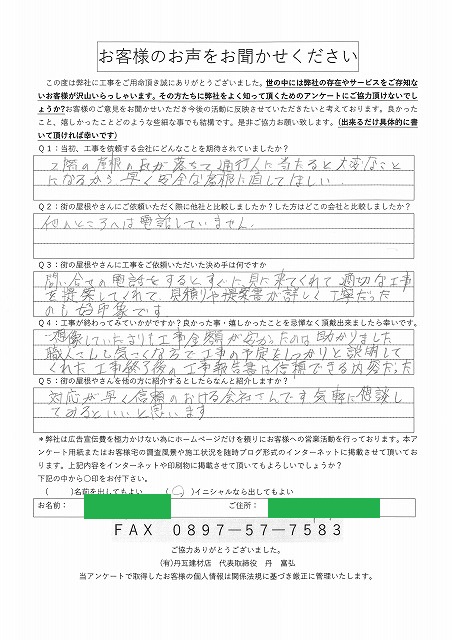 お客様のお声をお聞かせください
この度は弊社に工事をご用命頂き誠にありがとうございました。世の中には弊社の存在やサービスをご存知な
いお客様が沢山いらっしゃいます。その方たちに弊社をよく知って頂くためのアンケートにご協力頂けないでし
ょうか?お客様のご意見をお聞かせいただき今後の活動に反映させていただきたいと考えております。良かった
こと、嬉しかったことどのような些細な事でも結構です。是非ご協力お願い致します。(出来るだけ具体的に書
いて頂ければ幸いです)
Q1:当初、工事を依頼する会社にどんなことを期待されていましたか?
2階の屋根の瓦が落ちて通行人に当たると大変なこと
になるから早く安全な屋根に直してほしい.
Q2:街の屋根やさんにご依頼いただく際に他社と比較しましたか?した方はどこの会社と比較しましたか?
他のところへは電話していません.
Q3:街の屋根やさんに工事をご依頼いただいた決め手は何ですか
問い合せの電話をするとすぐに見に来てくれて適切な工事
を提案してくれて見積りや提案書が詳しく丁寧だった
のも好印象です
Q4:工事が終わってみていかがですか?良かった事・嬉しかったことを忌憚なく頂戴出来ましたら幸いです。
想像していたよりも工事金額が安かったのは助かりました
職人さんも気さくな方で工事の予定をしっかりと説明して
くれた 工事終了後の工事報告書は信頼できる内容だった
Q5:街の屋根やさんを他の方に紹介するとしたらなんと紹介しますか?
対応が早く信頼のおける会社さんです気軽に相談し
てみるといいと思います
*弊社は広告宣伝費を極力かけない為にホームページだけを頼りにお客様への営業活動を行っております。本ア
ンケート用紙またはお客様宅の調査風景や施工状況を随時ブログ形式のインターネットに掲載させて頂いてお
ります。上記内容をインターネットや印刷物に掲載させて頂いてもよろしいでしょうか?
下記の中から〇印をお付下さい。
( )名前を出してもよい (〇)イニシャルなら出してもよい
お名前: ご住所:
FAX 0897-57-7583
ご協力ありがとうございました。
(有)丹瓦建材店 代表取締役 丹 富弘
当アンケートで取得したお客様の個人情報は関係法規に基づき厳正に管理いたします。